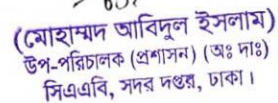 (মোহাম্মদ আবিদুল ইসলাম)
উপ-পরিচালক (প্রশাসন) (অঃ দাঃ)
সিএএবি, সদর দপ্তর, ঢাকা।